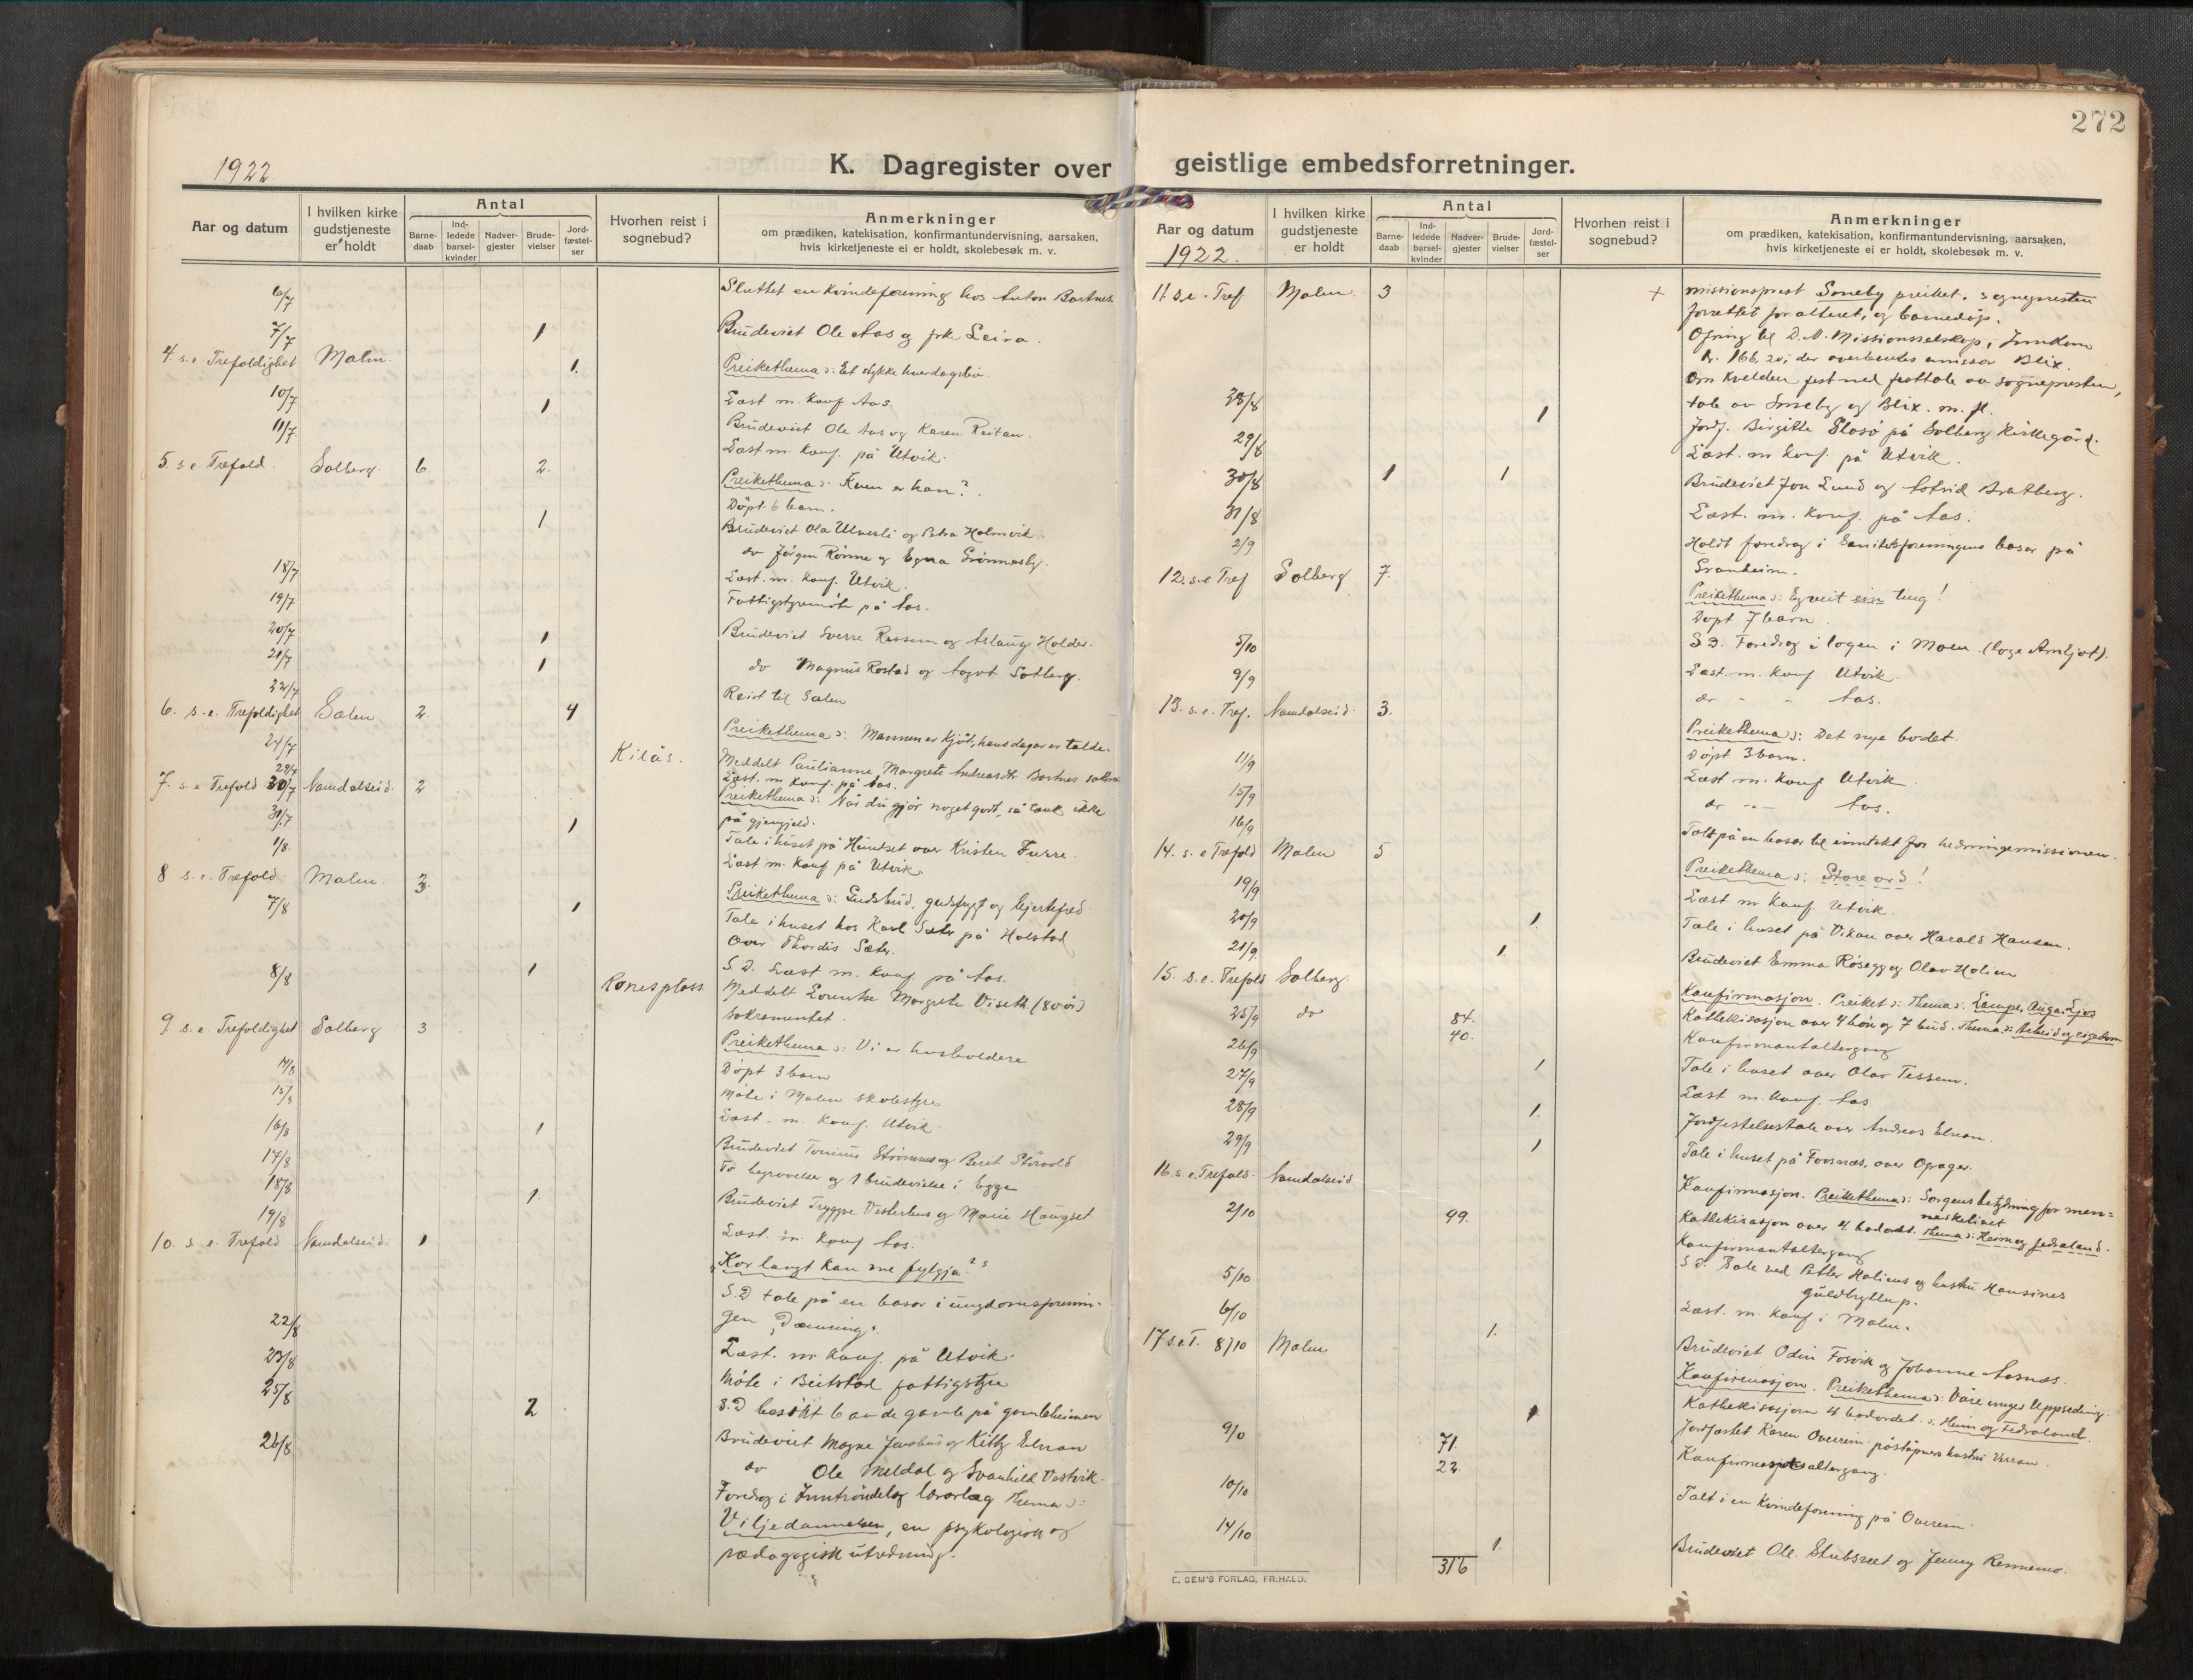 272
1922
K. Dagregister over geistlige embedsforretninger.
Aar og datum
I hvilken kirke gudstjeneste er holdt
Antal
Barne-daab
Ind-ledede barsel-kvinder
Nadver-gjester
Brude-vielser
Jord-fæstel-ser
Hvorhen reist i sognebud?
Anmerkninger
om prædiken, katekisation, konfirmantundervisning, aarsaken,
hvis kirketjeneste ei er holdt, skolebesøk m. v.
6/7 Sluttet en Kvindeforening hos Anton Bartnes
7/7 1 Brudeviet Ole Aas og frk Leira.
4. s.e. Trefoldighet Malm. 1. Preikethema: Et stykke hverdagsliv.
10/7 1 Læst m. Konf Aas.
11/7 Brudeviet Ole Aas og Karen Reitan.
Læst m. Konf. på Utvik.
5. s.e. Trefold. Solberg. 6. 2. Preikethema: Kven er han?
Döpt 6 barn.
1 Brudeviet Ola Ulvesli og Petra Holmvik
do Jörgen Rönne og Grönnesby.
18/7 Læst. m. Konf. Utvik.
19/7 Fattigstyremöte på Aas.
20/7 1 Brudeviet Sverre Rossum og Aslaug Holder.
21/7 1 do Magnus Rostad og Aagot Solberg.
22/7 Reist til Sælen
6. s.e. Trefoldighet Sælen 2 4 Preikethema: Mannen er Kjöt, hans dagar er talde.
24/7 Kilås. Meddelt Paulianne Margrete Andreasdtr Bartnes sakra
29/7 Læst. m Konf. på Aas.
7. s.e Trefold 30/7 Namdalseid. 2 Preikethema: Når du gjör noget godt, så tænk ikke
på gjengjeld.
31/7 1 Tale i huset på Hundset over Kristen Furre.
1/8. Læst m. Konf på Utvik
8 s.e. Trefold Malm. 3. Preikethema: Gudsbud, gudfrygt og hjertefred
7/8 1 Tale i huset hos Karl Sæter på Holstad
over Thordis Sæter.
S.D. Læst m. Konf på Aas.
8/8 1 Ronesplass Meddelt Lorentse Margrete Viseth (80 år)
sakramentet.
9 s.e. Trefoldighet Solberg 3 Preikethema: Vi er husholdere
Döpt 3 barn
14/8 Möte i Malm skolestyre
15/8 Læst. m. Konf. Utvik.
16/8 1 Brudeviet Strömnes og Berit Störvold
17/8 To begravelser og 1 brudevielse i Egge
18/8 1. Brudeviet Tryggve Vesterhus og Marie Haugset
19/8 Læst. m. Konf Aas.
10. s.e. Trefold Namdalseid 1 "Kor langt kan me fylgja?"
S.D tale på en basar i ungdomsforenin-
gen "Dæmring".
22/8 Læst. m Konf. på Utvik.
23/8 Möte i Beitstad fattigstyre
25/8 S.D besökt 6 av de gamle på gamleheimen
2 Brudeviet Magne Javnhus og Kitty Elnan
26/8 do Ole Meldal og Svanhild Vestvik.
Foredrag i Inntröndelag lærarlag Thema:
Viljedannelsen, en psykologisk og
pædagogisk utredning.
Aar og datum
1922.
I hvilken kirke gudstjeneste er holdt
Antal
Barne-daab
Ind-ledede barsel-kvinder
Nadver-gjester
Brude-vielser
Jord-fæstel-ser
Hvorhen reist i sognebud?
Anmerkninger
om prædiken, katekisation, konfirmantundervisning, aarsaken,
hvis kirketjeneste ei er holdt, skolebesøk m. v.
11. s.e. Tref Malm. 3 + missionsprest Sæneby preiket. sognepresten
forrettet for alteret, og barnedöp.
Ofring til D.N. Missionsselskap, Innkom
Kr. 166,20, der overleveredes emissær Blix.
Om Kvelden fest med festtale av sognepresten,
tale av og Blix. m. fl.
28/8 1 Jordf. Birgitte Slasö på Solberg Kirkegård.
29/8 Læst. m Konf. på Utvik.
30/8 1 1 Brudeviet Jon Lund og Astrid Bratberg.
31/8 Læst. m. Konf. på Aas.
2/9 Holdt foredrag i Sanitetsforeningens basar på
Granheim.
12. s.e Tref Solberg 7. Preikethema: Eg veit ein ting!
Döpt 7 barn.
S.D. Foredrag i logen i Moen. (loge Arnljot).
5/10 Læst. m. Konf Utvik.
9/9 do - - Aas.
13. s.e. Tref. Namdalseid. 3. Preikethema: Det nye bodet.
Döpt 3 barn.
11/9 Læst m. Konf Utvik.
15/9 do - - Aas.
16/9 Talt på en basar til inntekt for hedningemissionen.
14. s.e Trefold Malm 5 Preikethema: Store ord!
19/9 Læst m Konf. Utvik.
20/9 1. Tale i huset på Vikan over Harald Hansen.
21/9 1. Brudeviet Emma Rösegg og Olav Holien
15. s.e. Trefold Solberg. Konfirmasjon. Preiket: Thema: Lampe, Auga, Ljos
25/9 do 84. Kathekisasjon over 4 bön og 7 bud. Thema: Arbeid og eigedom
26/9 40. Konfirmantaltergang
27/9 1 Tale i huset over Olav Tessem.
Læst m. Konf. Aas
28/9 1. Jordfestelsestale over Andreas Elnan.
29/9 1 Tale i huset på Fossnes, over
16. s.e. Trefold. Namdalseid Konfirmasjon. Preikethema: Sorgens betydning for men=
neskelivet
2/10 99. Kathekisasjon over 4. bodordet. Thema: Heim og fedraland.
Konfirmantaltergang
5/10 S.D. Tale ved Petter Holiens og hustru Hansines
guldbryllup.
6/10 Læst. m. Konf i Malm.
17 s.e.T. 8/10 Malm 1. Brudeviet Odin Fosvik og Johanne Aasnæs.
Konfirmasjon. Preikethema: Våre unges Uppseding.
Kathekisasjon 4 bodordet: Heim og Fedraland.
9/10 71. 1 Jordfæstet Karen Overrein postopners hustru Verran.
22. Konfirmasjonsaltergang.
10/10 Talt i en Kvindeforening på Overrein.
14/10 1. Brudeviet Ole Stubsveet og Jenny Rennemo.
316
E. SEM'S FORLAG, FR.HALD.